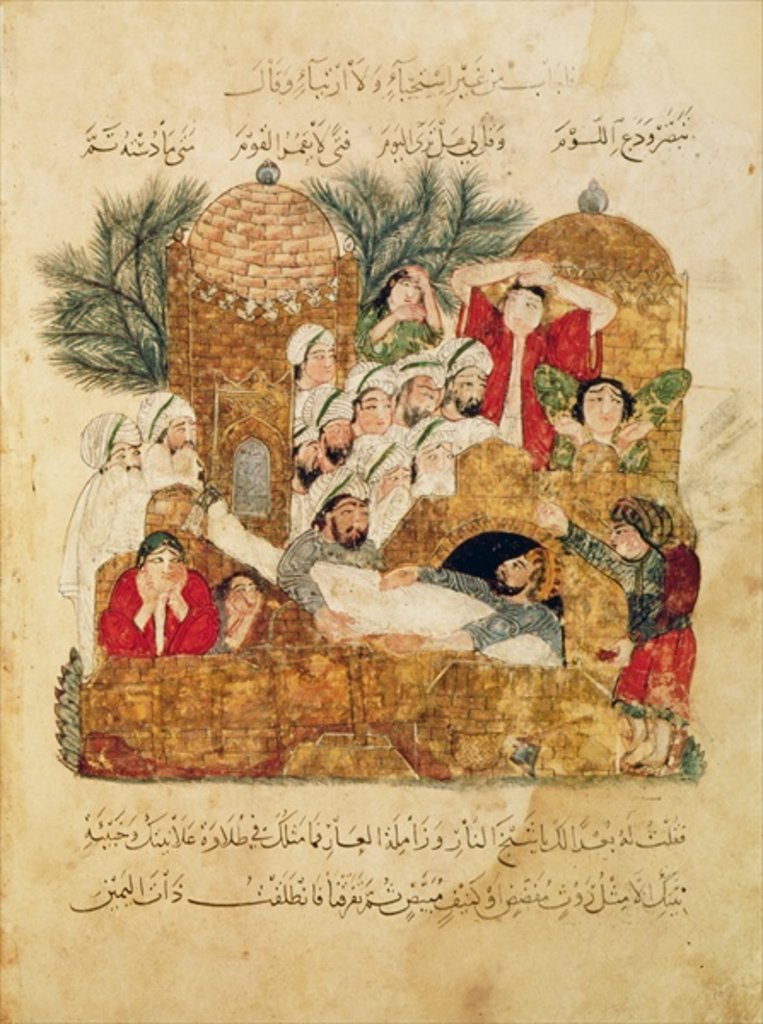 فأجاب من غير استحياء ولا ارتياء وقال
تبصر ودع اللوم وقل لي هل ترى اليوم فتى لا يقمر القوم متى ما دسته تم
فقلت له بعدا لك يا شيخ النار وزاملة العار فما مثلك في طلاوة علانيتك
نيتك الا مثل روث مفضض او كنيف مبيض ثم تفرقنا فانطلقت ذات اليمين